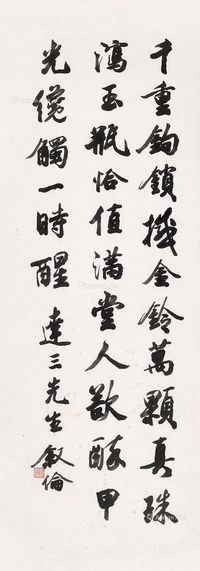 千重鈎鎖掣金鈴萬顆真珠
瀉玉瓶恰值滿堂人欲醉甲
光纔觸一時醒 達三先生 叙倫